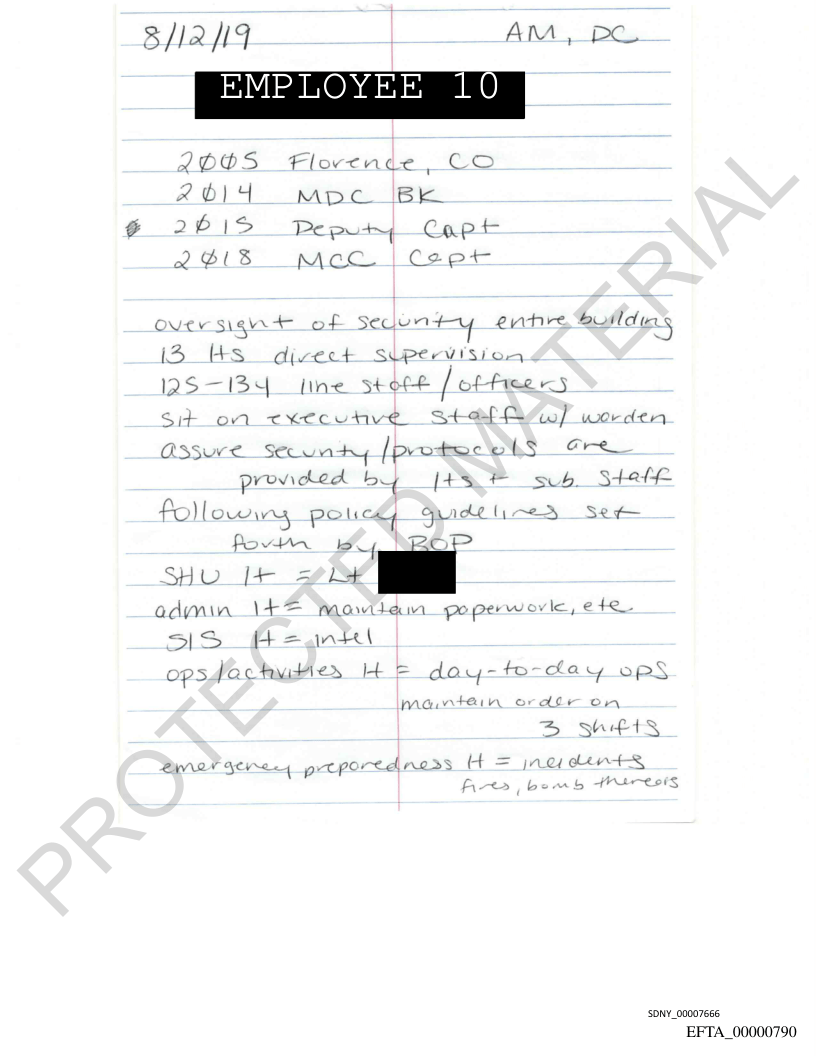 8/12/19 AM, DC
EMPLOYEE 10
2005 Florence, CO
2014 MDC BK
2015 Deputy Capt
2018 MCC Capt
oversight of security entire building
13 lts direct supervision
125-134 line staff/officers
sit on executive staff w/ warden
assure security/protocols are
provided by lts + sub. staff
following policy guidelines set
forth by BOP
SHU lt = Lt
admin lt = maintain paperwork, etc
SIS lt = intel
ops/activities lt = day-to-day ops
maintain order on
3 shifts
emergency preparedness lt = incidents
fires, bomb
PROTECTED MATERIAL
SDNY_00007666
EFTA_00000790